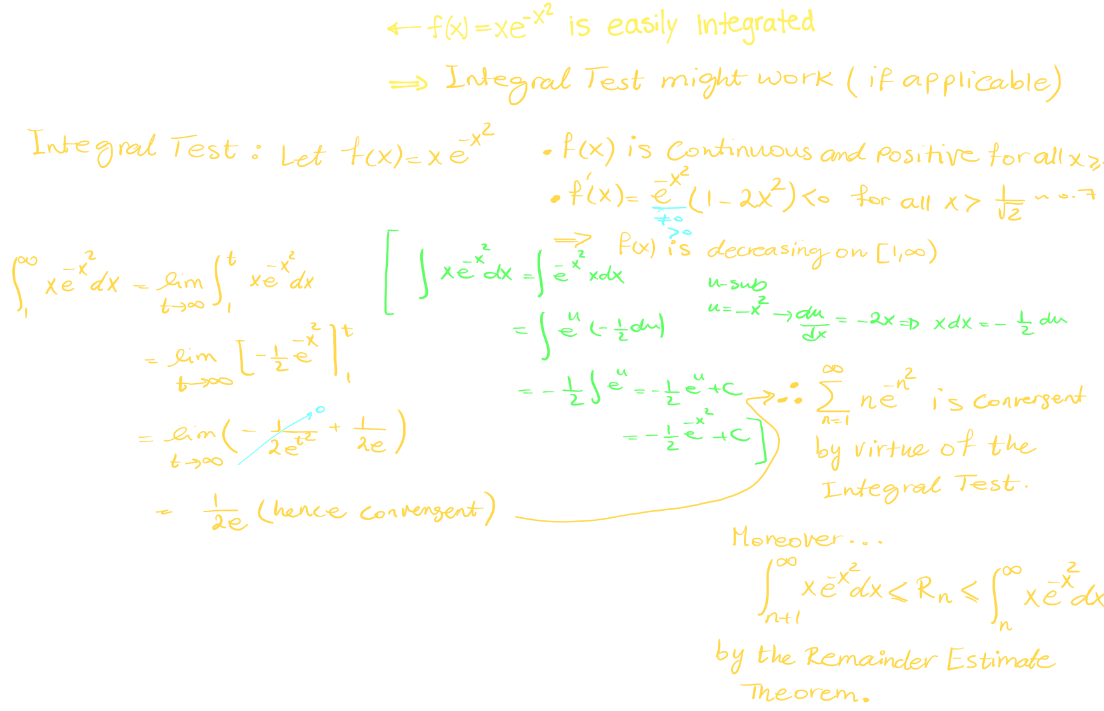 ← f(x) = xe^{-x^2} is easily integrated
⇒ Integral Test might work (if applicable)
Integral Test : Let f(x) = x e^{-x^2}
• f(x) is continuous and positive for all x ≥
• f'(x) = e^{-x^2} (1 - 2x^2) < 0 for all x > 1/√2 ~ 0.7
≠0
>0
⇒ f(x) is decreasing on [1,∞)
∫_1^∞ xe^{-x^2} dx = lim_{t→∞} ∫_1^t xe^{-x^2} dx
= lim_{t→∞} [-1/2 e^{-x^2}]_1^t
= lim_{t→∞} (-1/(2e^{t^2}) + 1/(2e))
0
= 1/(2e) (hence convergent)
[ ∫ xe^{-x^2} dx = ∫ e^{-x^2} x dx
u-sub
u = -x^2 → du/dx = -2x ⇒ x dx = -1/2 du
= ∫ e^u (-1/2 du)
= -1/2 ∫ e^u = -1/2 e^u + C
= -1/2 e^{-x^2} + C ]
∴ ∑_{n=1}^∞ ne^{-n^2} is convergent
by virtue of the
Integral Test.
Moreover...
∫_{n+1}^∞ xe^{-x^2} dx ≤ R_n ≤ ∫_n^∞ xe^{-x^2} dx
by the Remainder Estimate
Theorem.